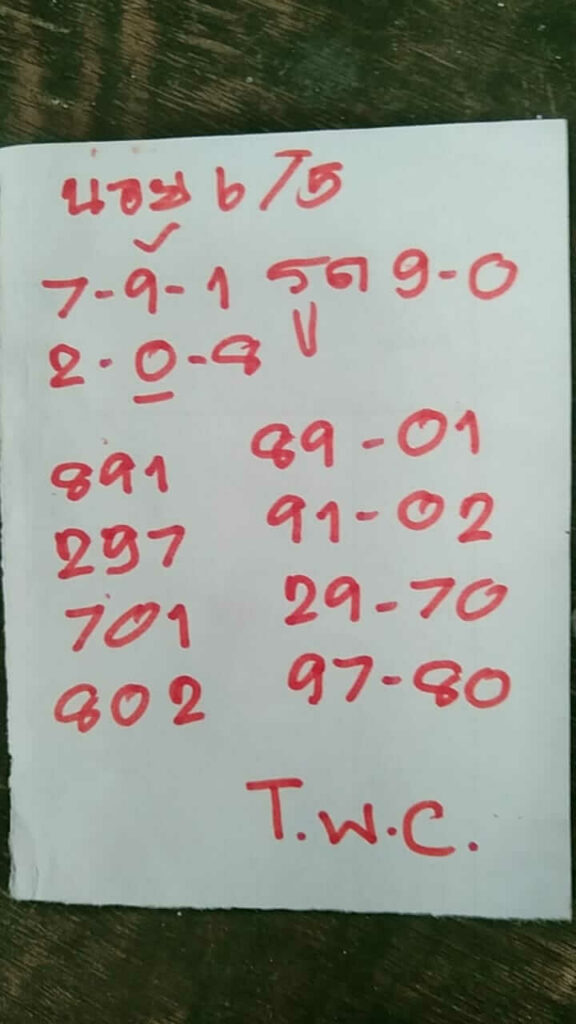 น่อย์ 6/5
7-9-1 รูด 9-0
2-0-8
891 89-01
297 91-02
701 29-70
802 97-80
T.W.C.